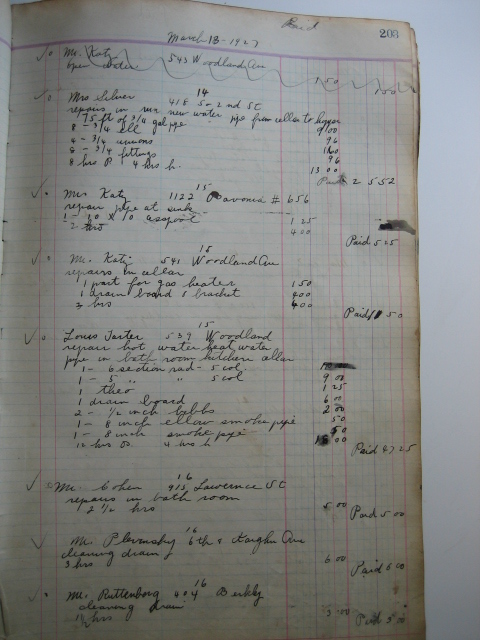 Paid
203
March 13-1927
To Mr. Katz 543 Woodland Ave
open water 1 50 1 00
14
To Mrs Silver 418 So 2nd St
repairs in run new water pipe from cellar to
75 ft of 3/4 gal pipe 9 00
8 - 3/4 ell 96
4 - 3/4 unions 1 60
8 - 3/4 fittings 96
8 hrs P 4 hrs h. 13 00
Paid 25 52
15
Mr Katz 1122 Pavonia # 656
repair pipe at sink
1 - 20 x 10 1 25
2 hrs 4 00
Paid 5 25
15
Mr. Katz 541 Woodland Ave
repairs in cellar
1 part for gas heater 1 50
1 drain board 1 bracket
hrs 4 00
Paid 50
15
Louis Tarter 539 Woodland
repair hot water heat water
pipe in bath room kitchen cellar
1 - 6 section rad - 5 col.
1 - 5 " " 5 col 9 00
1 1 25
1 drain board 6 00
2 - 1/2 inch bibbs 2 00
1 - 8 inch ellow smoke pipe 50
1 - 8 inch smoke pipe 50
hrs 4 hrs h 00
Paid 47.25
16
Mr. Cohen 915 Lawernce St
repairs in bath room
2 1/2 hrs 5.00
Paid 5 00
16
Mr. 6th & Kaighn Ave
cleaning drain
3 hrs 6 00
Paid 6 00
16
Mr. Ruttenborg 404 Berkly
cleaning drain
1 1/2 hrs 3.00
Paid 3 00